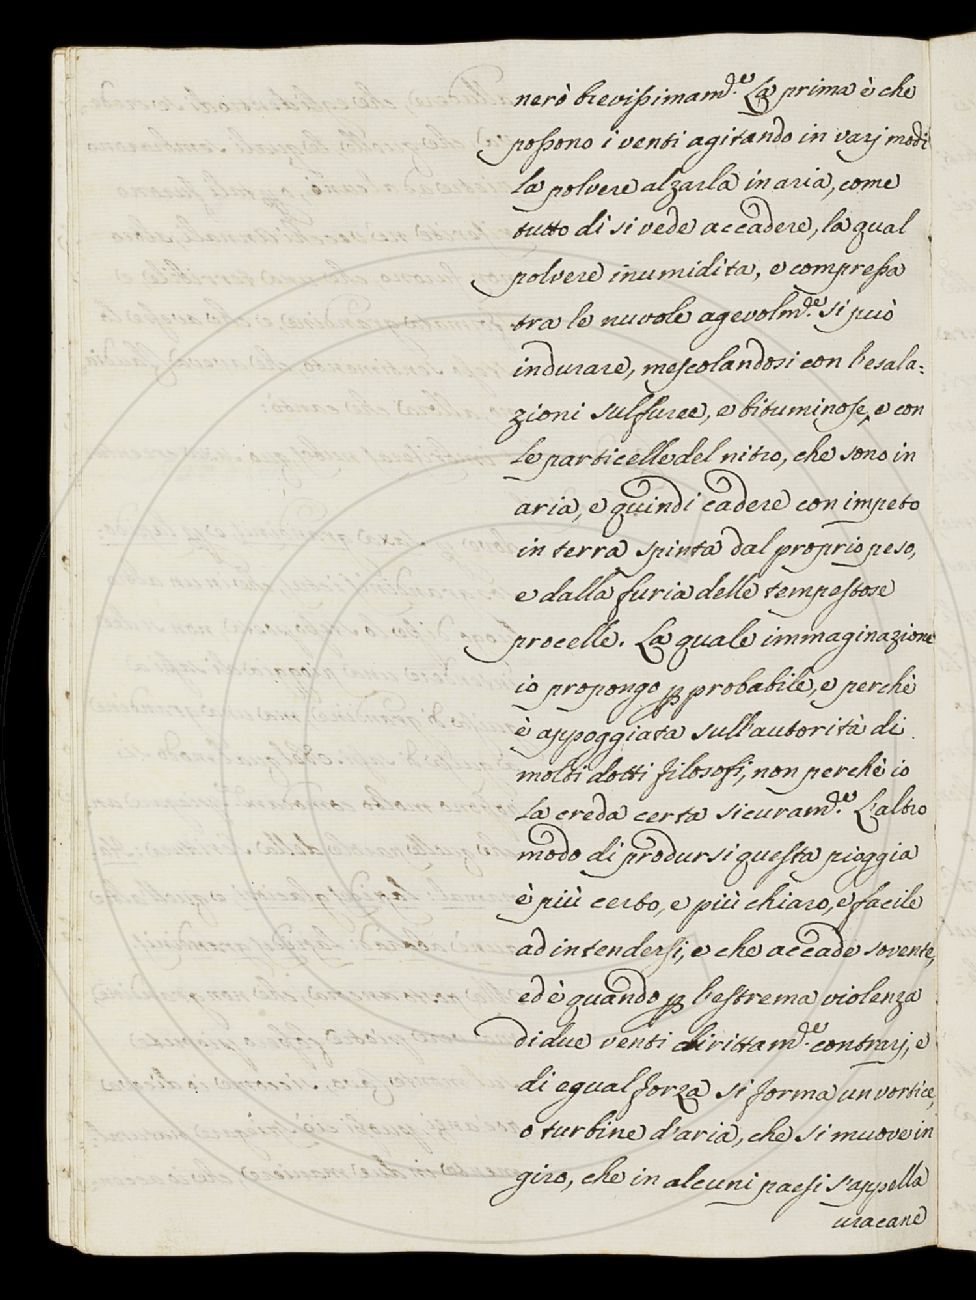 nerò brevissimam.te La prima è che
possono i venti agitando in varj modi
la polvere alzarla in aria, come
tutto dì si vede accadere, la qual
polvere inumidita, e compressa
tra le nuvole agevolm.te si può
indurare, mescolandosi con l'esala=
zioni sulfuree, e bituminose, e con
le particelle del nitro, che sono in
aria, e quindi cadere con impeto
in terra spinta dal proprio peso,
e dalla furia delle tempestose
procelle. La quale immaginazione
io propongo p probabile, e perchè
è appoggiata sull'autorità di
molti dotti filosofi, non perchè io
la creda certa sicuram.te L'altro
modo di prodursi questa pioggia
è più certo, e più chiaro, e facile
ad intendersi, e che accade sovente,
ed è quando p l'estrema violenza
di due venti dirittam.te contrarj, e
di egual forza si forma un vortice,
o turbine d'aria, che si muove in
giro, che in alcuni paesi s'appella
uracane